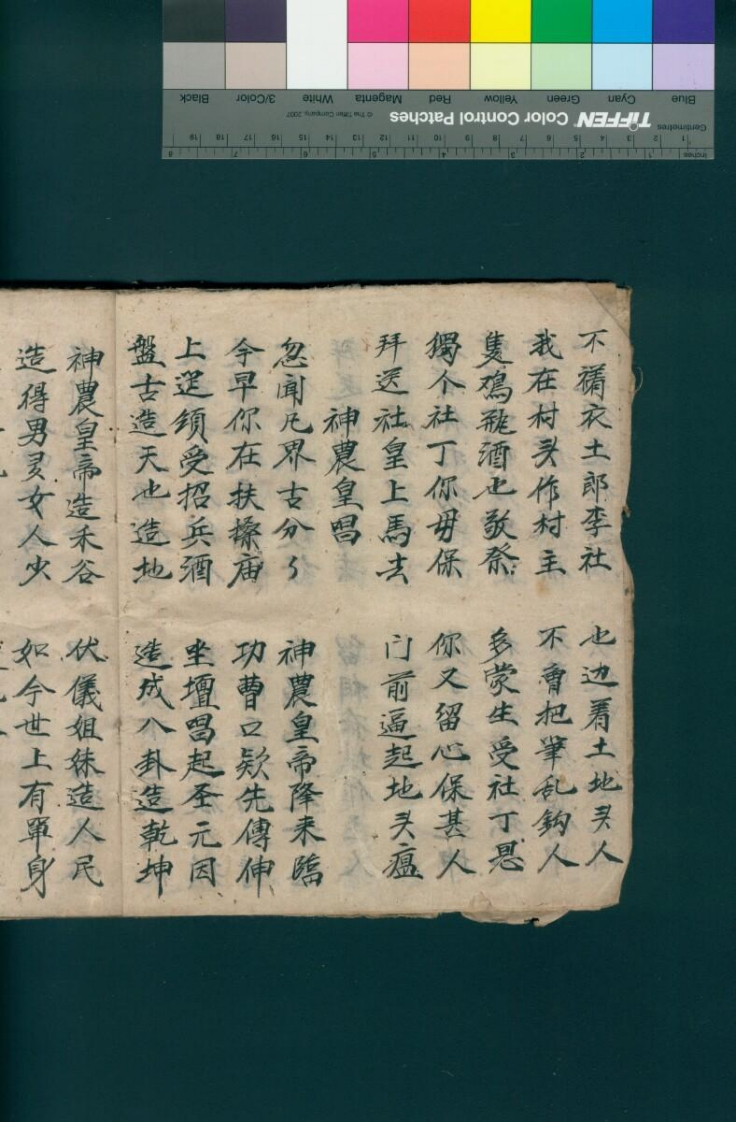 Blue Cyan Green Yellow Red Magenta White 3/Color Black
TIFFEN Color Control Patches © The Tiffen Company, 2007
Centimetres
Inches
不 衣土郎李社 也边着土地头人
我在村头作村主 不會把筆乱鈎人
隻鸡瓶酒也敬祭 多蒙生受社丁恩
獨个社丁你毋保 你又留心保甚人
拜送社皇上馬去 门前逼起地头瘟
神農皇唱
忽闻凡界古分〻 神農皇帝降来臨
今早你在扶 庙 功曹口欵先傳伸
上筵领受招兵酒 坐壇唱起圣元因
盤古造天也造地 造成八卦造乾坤
神農皇帝造禾谷 伏儀姐妹造人民
造得男 女人少 如今世上有單身